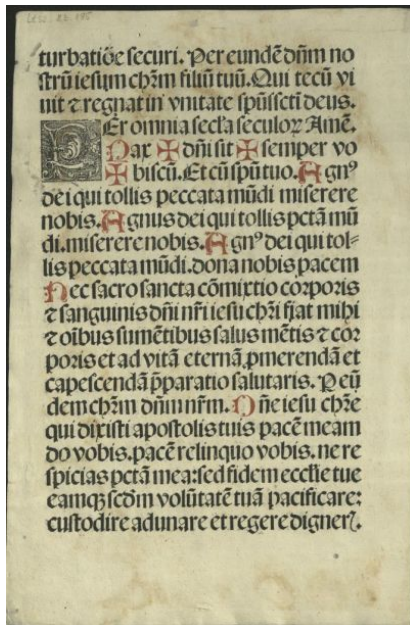 turbatiōe securi. Per eundē dn̄m no
strū iesum chr̄m filiū tuū. Qui tecū vi
uit ⁊ regnat in vnitate sp̄ussctī deus.
PEr omnia secl̄a seculoꝝ Amē.
Pax ✠ dn̄i sit ✠ semper vo
✠ biscū. Et cū sp̄u tuo. Agnꝰ
dei qui tollis peccata mūdi miserere
nobis. Agnus dei qui tollis pctā mū
di. miserere nobis. Agnꝰ dei qui tol⸗
lis peccata mūdi. dona nobis pacem
Hec sacrosancta cōmixtio corporis
⁊ sanguinis dn̄i nr̄i iesu chr̄i fiat mihi
⁊ oībus sumētibus salus mētis ⁊ cor
poris et ad vitā eternā ꝓmerendā et
capescendā p̄paratio salutaris. Per eū
dem chr̄m dn̄m nr̄m. Dn̄e iesu chr̄e
qui dixisti apostolis tuis pacē meam
do vobis. pacē relinquo vobis. ne re
spicias pctā mea: sed fidem eccl̄ie tue
eamqꝫ scd̄m volūtatē tuā pacificare:
custodire adunare et regere digneꝝ.